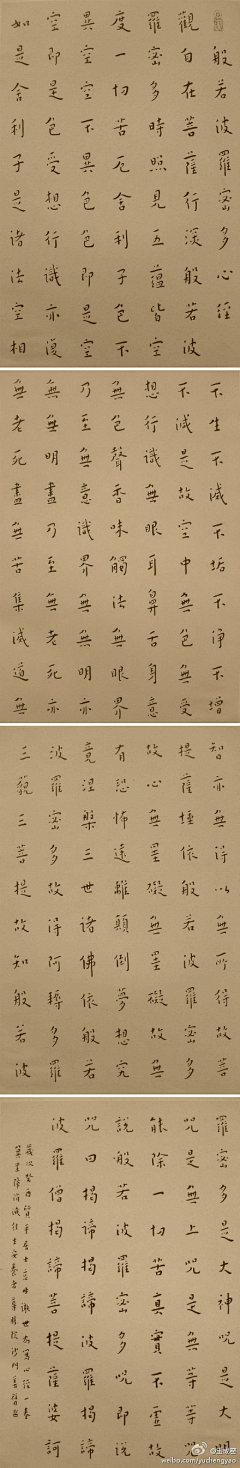 般若波羅密多心經
觀自在菩薩行深般若波
羅密多時照見五蘊皆空
度一切苦厄舍利子色不
異空空不異色色即是空
空即是色受想行識亦復
如是舍利子是諸法空相
不生不滅不垢不淨不增
不減是故空中無色無受
想行識無眼耳鼻舌身意
無色聲香味觸法無眼界
乃至無意識界無無明亦
無無明盡乃至無老死亦
無老死盡無苦集滅道無
智亦無得以無所得故菩
提薩埵依般若波羅密多
故心無罣礙無罣礙故無
有恐怖遠離顛倒夢想究
竟涅槃三世諸佛依般若
波羅密多故得阿耨多羅
三藐三菩提故知般若波
羅密多是大神咒是大明
咒是無上咒是無等等咒
能除一切苦真實不虛故
說般若波羅密多咒即說
咒曰揭諦揭諦波羅揭諦
波羅僧揭諦菩提薩婆訶
weibo.com/yuchengyao